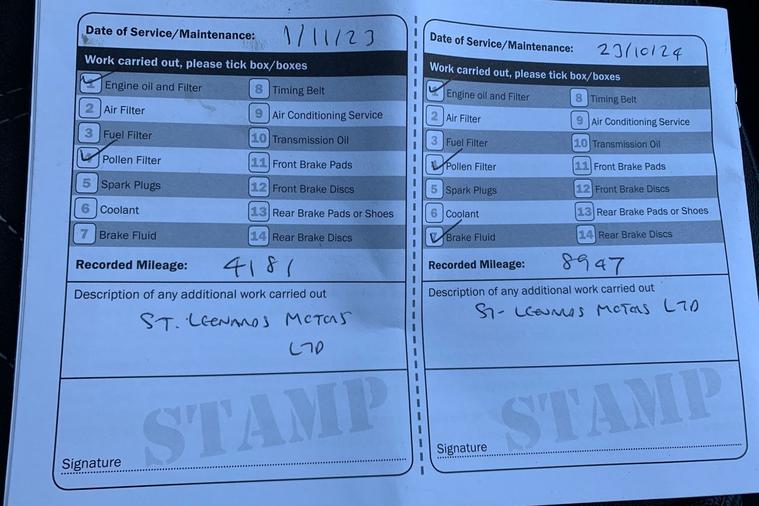 Date of Service/Maintenance: 1/11/23
Work carried out, please tick box/boxes
1 Engine oil and Filter 8 Timing Belt
2 Air Filter 9 Air Conditioning Service
3 Fuel Filter 10 Transmission Oil
4 Pollen Filter 11 Front Brake Pads
5 Spark Plugs 12 Front Brake Discs
6 Coolant 13 Rear Brake Pads or Shoes
7 Brake Fluid 14 Rear Brake Discs
Recorded Mileage: 4181
Description of any additional work carried out
ST. LEENARDS MOTORS
LTD
STAMP
Signature
Date of Service/Maintenance: 23/10/24
Work carried out, please tick box/boxes
1 Engine oil and Filter 8 Timing Belt
2 Air Filter 9 Air Conditioning Service
3 Fuel Filter 10 Transmission Oil
Pollen Filter 11 Front Brake Pads
5 Spark Plugs 12 Front Brake Discs
6 Coolant 13 Rear Brake Pads or Shoes
7 Brake Fluid 14 Rear Brake Discs
Recorded Mileage: 8947
Description of any additional work carried out
ST- LEENARDS MOTORS LTD
STAMP
Signature